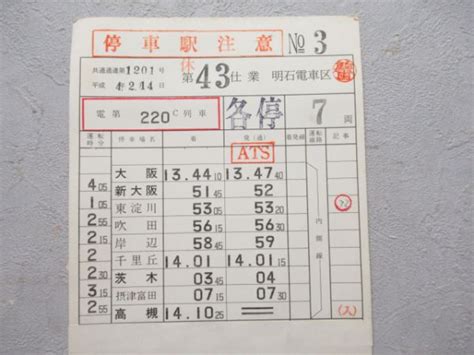 停車駅注意 No 3
休
共通通達第1201号 第43仕業 明石電車区
平成 4.2.14 日
電第 220C列車 各停 7両
運転時分 停車場名 着 発(通) 着発線 運転線路 記事
ATS
大阪 13.44 10 13.47 40
4 05
新大阪 51 45 52
1 05
東淀川 53 05 53 50
2 55
吹田 56 45 57 30
2 15
岸辺 58 45 59
2
千里丘 14.01 14.01 15
2
茨木 03 45 04
3 15
摂津富田 07 15 07 30
2 55
高槻 14.10 25
内側線
(入)